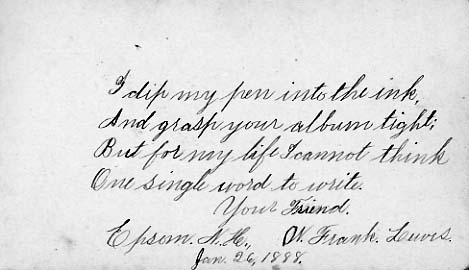 I dip my pen into the ink,
And grasp your album tight;
But for my life I cannot think
One single word to write.
Your Friend.
Epsom. N.H., W. Frank. Lewis.
Jan. 26, 1888.